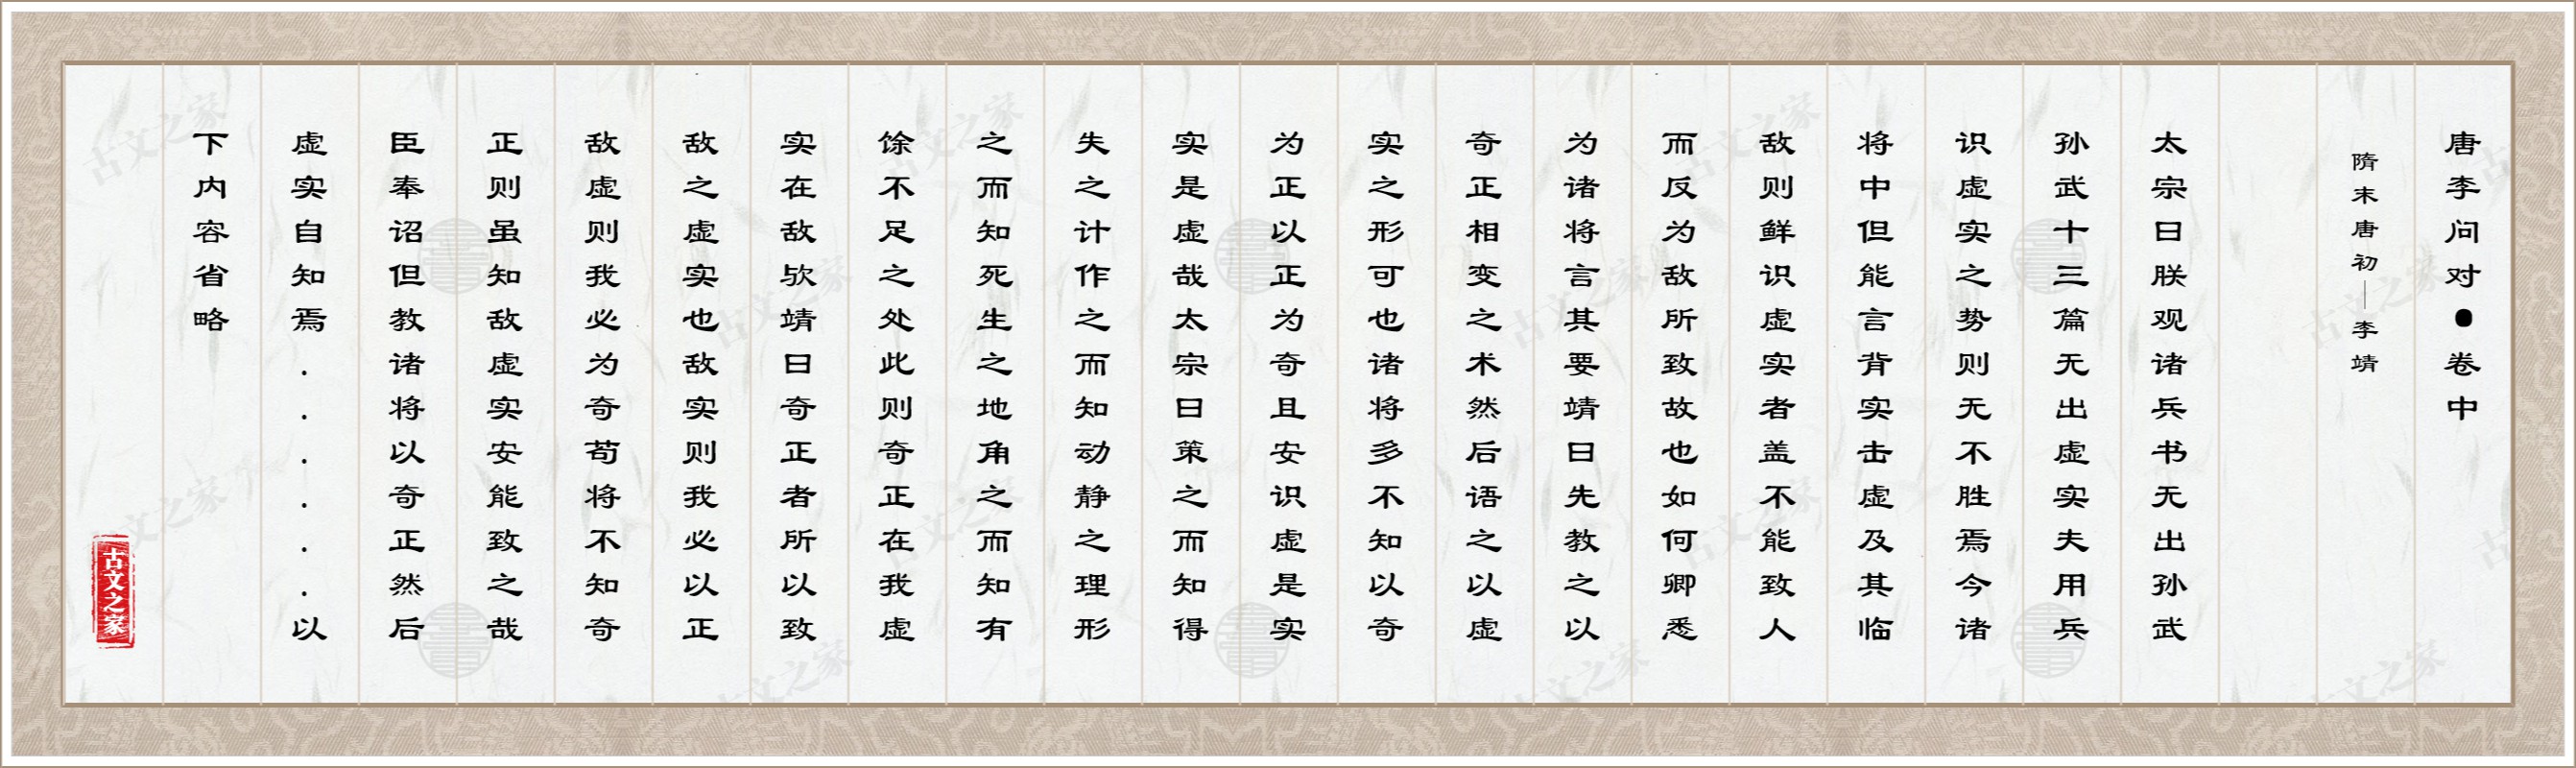 唐李问对●卷中
隋末唐初—李靖
太宗曰朕观诸兵书无出孙武
孙武十三篇无出虚实夫用兵
识虚实之势则无不胜焉今诸
将中但能言背实击虚及其临
敌则鲜识虚实者盖不能致人
而反为敌所致故也如何卿悉
为诸将言其要靖曰先教之以
奇正相变之术然后语之以虚
实之形可也诸将多不知以奇
为正以正为奇且安识虚是实
实是虚哉太宗曰策之而知得
失之计作之而知动静之理形
之而知死生之地角之而知有
馀不足之处此则奇正在我虚
实在敌欤靖曰奇正者所以致
敌之虚实也敌实则我必以正
敌虚则我必为奇苟将不知奇
正则虽知敌虚实安能致之哉
臣奉诏但教诸将以奇正然后
虚实自知焉......以
下内容省略
古文之家